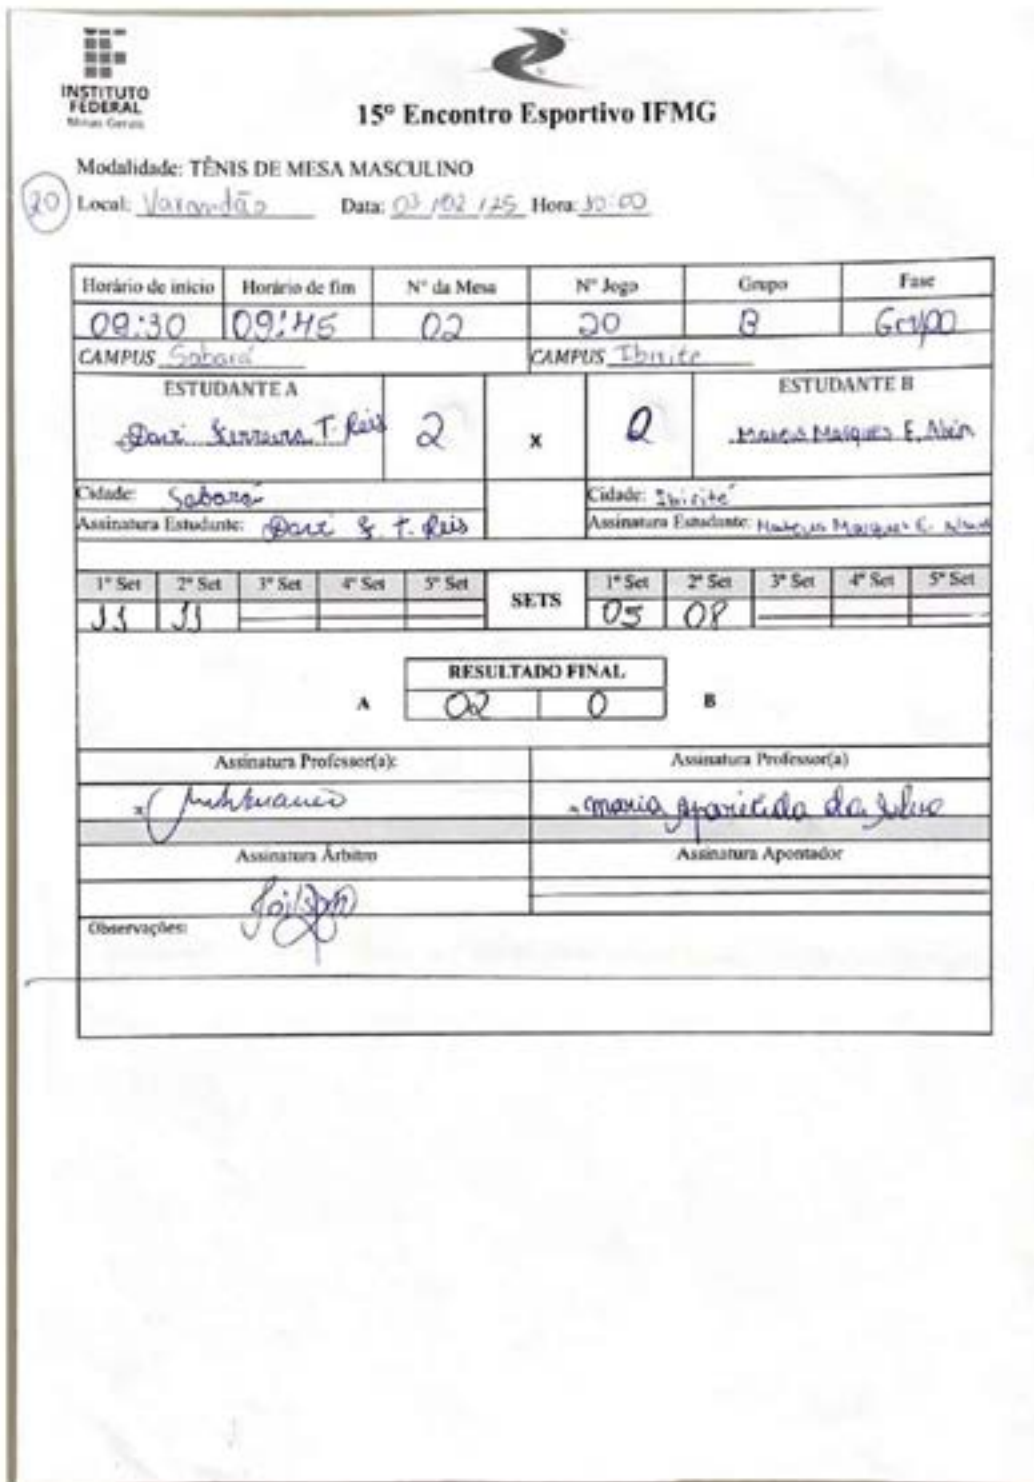 INSTITUTO
FEDERAL
Minas Gerais
15º Encontro Esportivo IFMG
Modalidade: TÊNIS DE MESA MASCULINO
20 Local: Varandão Data: 03/02/25 Hora: 10:00
Horário de início Horário de fim Nº da Mesa Nº Jogo Grupo Fase
09:30 09:45 02 20 B Grupo
CAMPUS Sabará CAMPUS Ibirité
ESTUDANTE A ESTUDANTE B
Davi Ferreira T. Reis 2 x 0 Marques E.
Cidade: Sabará Cidade: Ibirité
Assinatura Estudante: Davi F. T. Reis Assinatura Estudante: Mateus Marques E.
1º Set 2º Set 3º Set 4º Set 5º Set SETS 1º Set 2º Set 3º Set 4º Set 5º Set
11 11 05 08
RESULTADO FINAL
A 02 0 B
Assinatura Professor(a): Assinatura Professor(a)
x x maria Aparecida da Silva
Assinatura Árbitro Assinatura Apontador
Joilson
Observações: